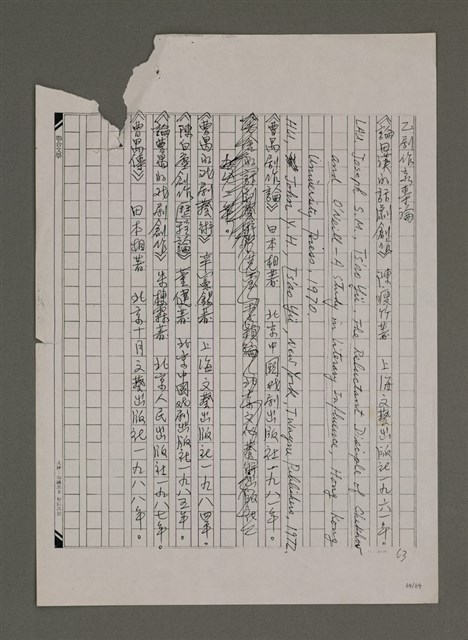 乙 劇作家專論
《論田漢的話劇創作》 陳瘦竹著 上海文藝出版社一九六一年。
LAU, Joseph S.M., Ts'ao Yü, The Reluctant Disciple of Chekhov
and O'Neill - A Study in Literary Influence, Hong Kong
University Press, 1970.
HU, John Y.H., Ts'ao Yü, New York, Twayne Publishers, 1972.
《曹禺劇作論》 田本相著 北京中國戲劇出版社一九八一年。
《曹禺的戲劇藝術》 辛憲錫著 上海文藝出版社一九八四年。
《陳白塵創作歷程論》 董健著 北京中國戲劇出版社一九八五年。
《論曹禺的戲劇創作》 朱棟霖著 北京人民出版社一九八七年。
《曹禺傳》 田本相著 北京十月文藝出版社一九八八年。
63
64/64